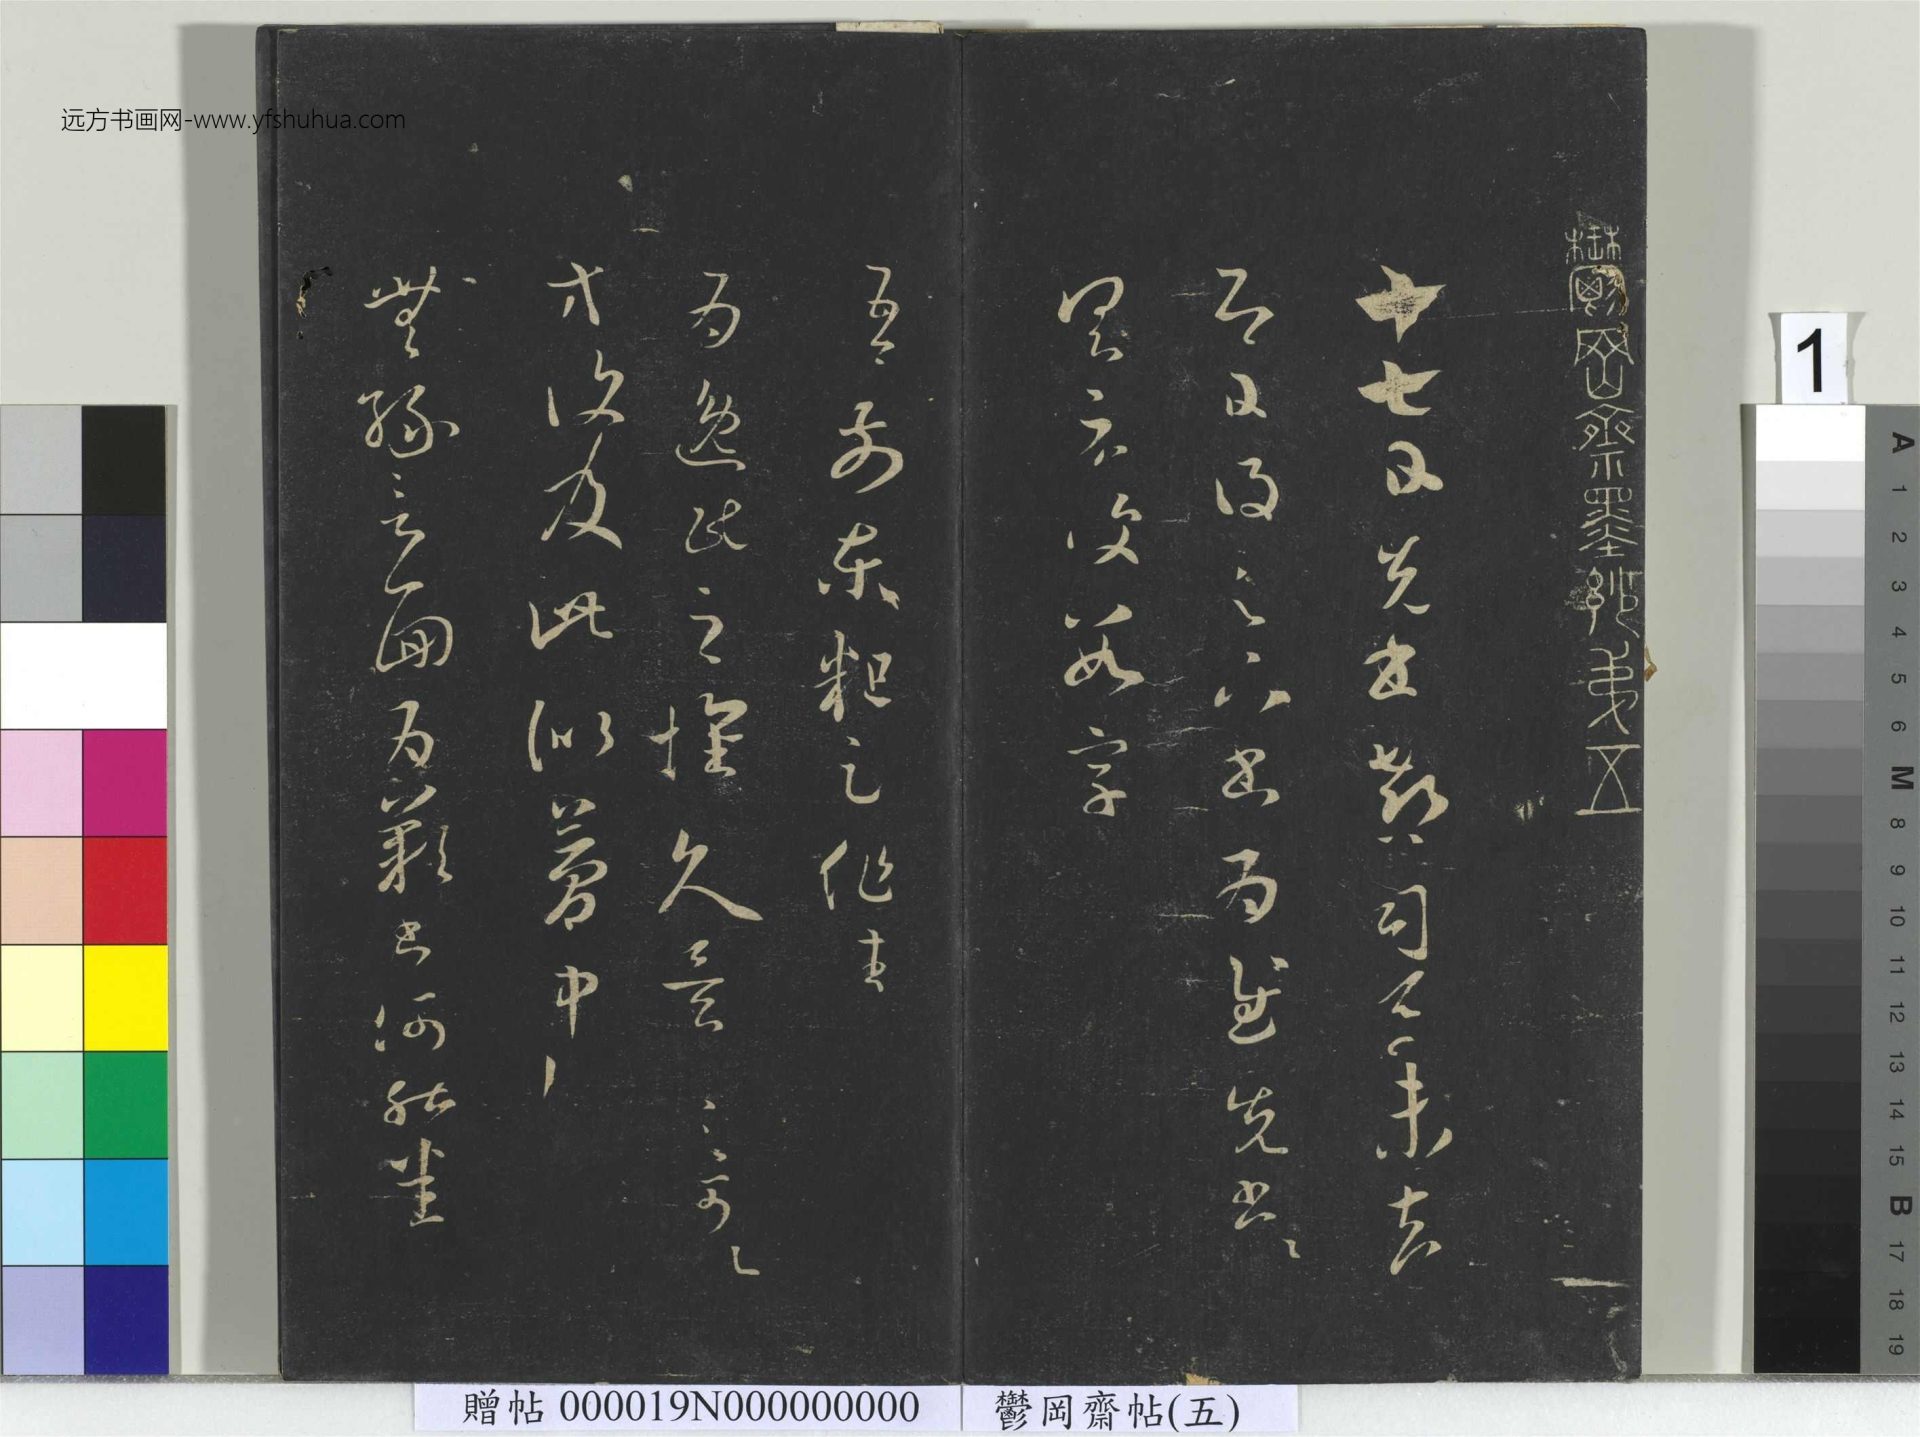 鬱岡齋墨妙第五
十七日先書郗司馬未去
即日得足下書為慰先書以
具示復數字
吾前東粗足作佳
為逸民之懷久矣足下何以
等復及此似夢中
無緣言面為歎書何能悉
远方书画网-www.yfshuhua.com
1
A
1
2
3
4
5
6
M
8
9
10
11
12
13
14
15
B
17
18
19
贈帖 000019N000000000
鬱岡齋帖(五)